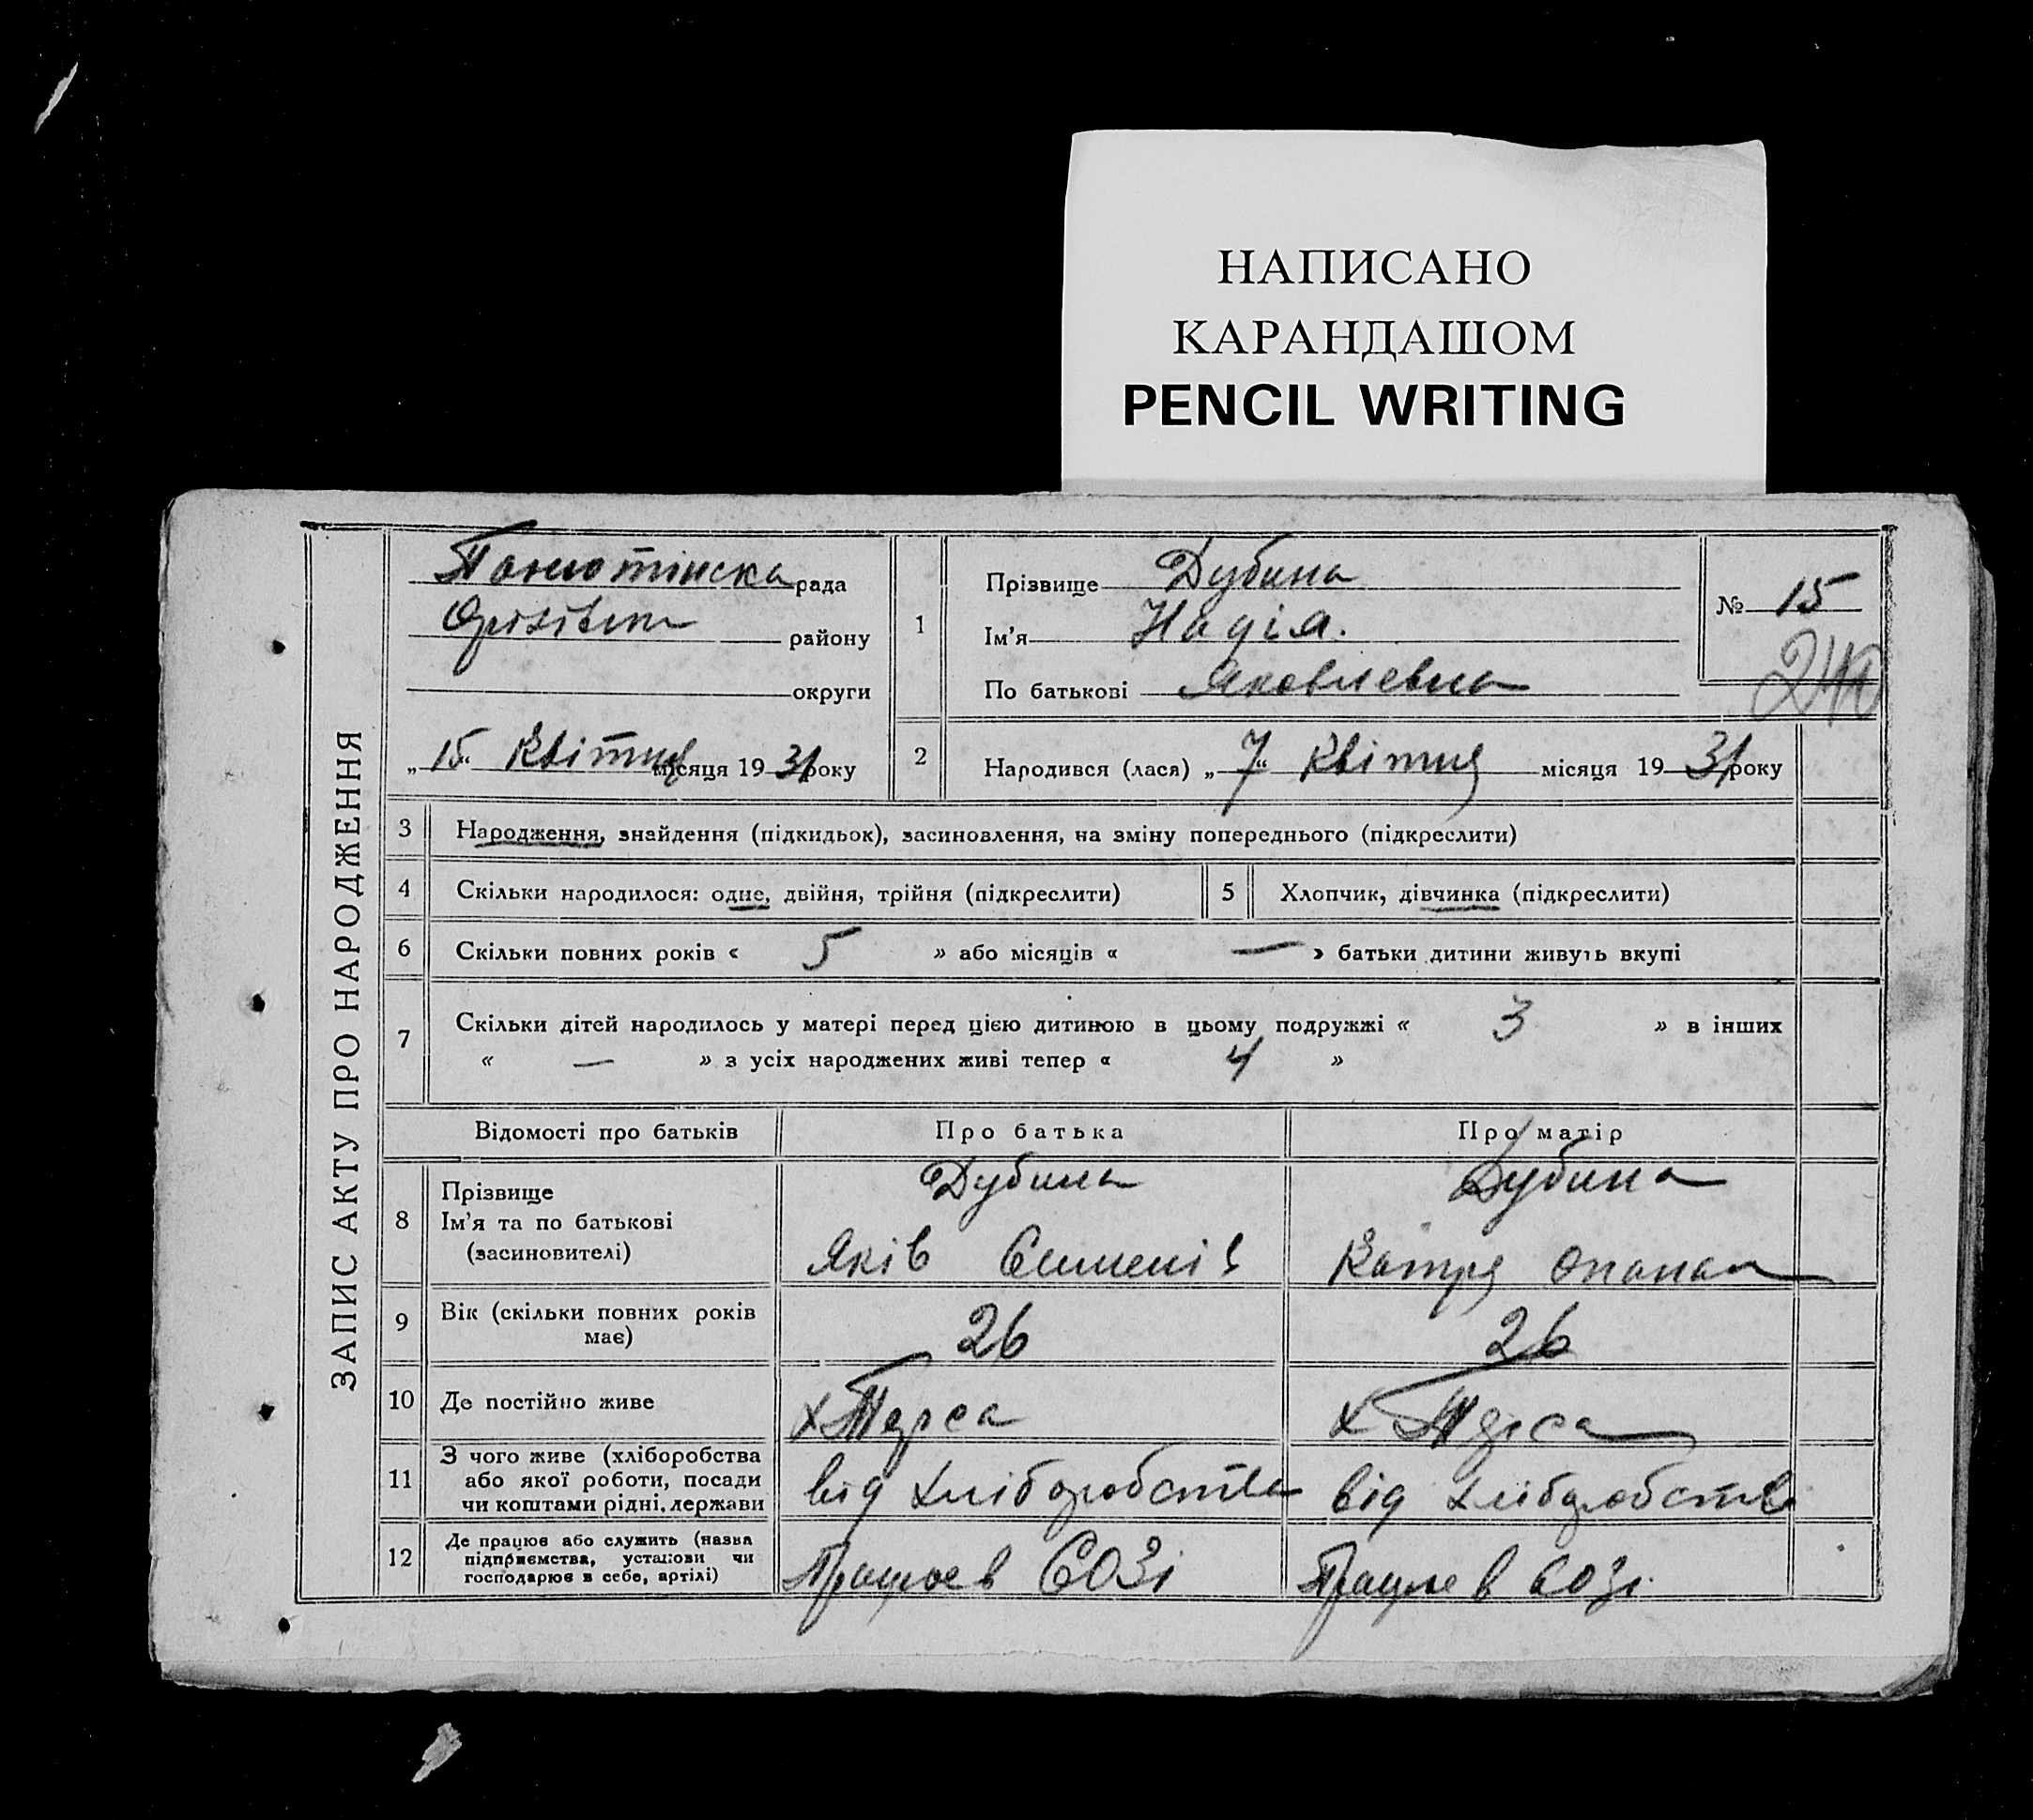 НАПИСАНО
КАРАНДАШОМ
PENCIL WRITING
ЗАПИС АКТУ ПРО НАРОДЖЕННЯ
Панютінска рада
району
округи
„15“ Квітня місяця 1931 року
1
Прізвище Дубина
Ім'я Надія.
По батькові Яковлевна
№ 15
240
2
Народився (лася) „7“ Квітня місяця 1931 року
3 Народження, знайдення (підкидьок), засиновлення, на зміну попереднього (підкреслити)
4 Скільки народилося: одне, двійня, трійня (підкреслити) 5 Хлопчик, дівчинка (підкреслити)
6 Скільки повних років « 5 » або місяців « — » батьки дитини живуть вкупі
7 Скільки дітей народилось у матері перед цією дитиною в цьому подружжі « 3 » в інших
« — » з усіх народжених живі тепер « 4 »
Відомості про батьків Про батька Про матір
8 Прізвище
Ім'я та по батькові
(засиновителі)
Дубина
Яків
Дубина
Катря Опанас
9 Вік (скільки повних років
має)
26 26
10 Де постійно живе х Терса х Терса
11 З чого живе (хліборобства
або якої роботи, посади
чи коштами рідні, держави
від хліборобства від хліборобства
12 Де працює або служить (назва
підприємства, установи чи
господарює в себе, артілі)
Працює в СОЗі Працює в созі